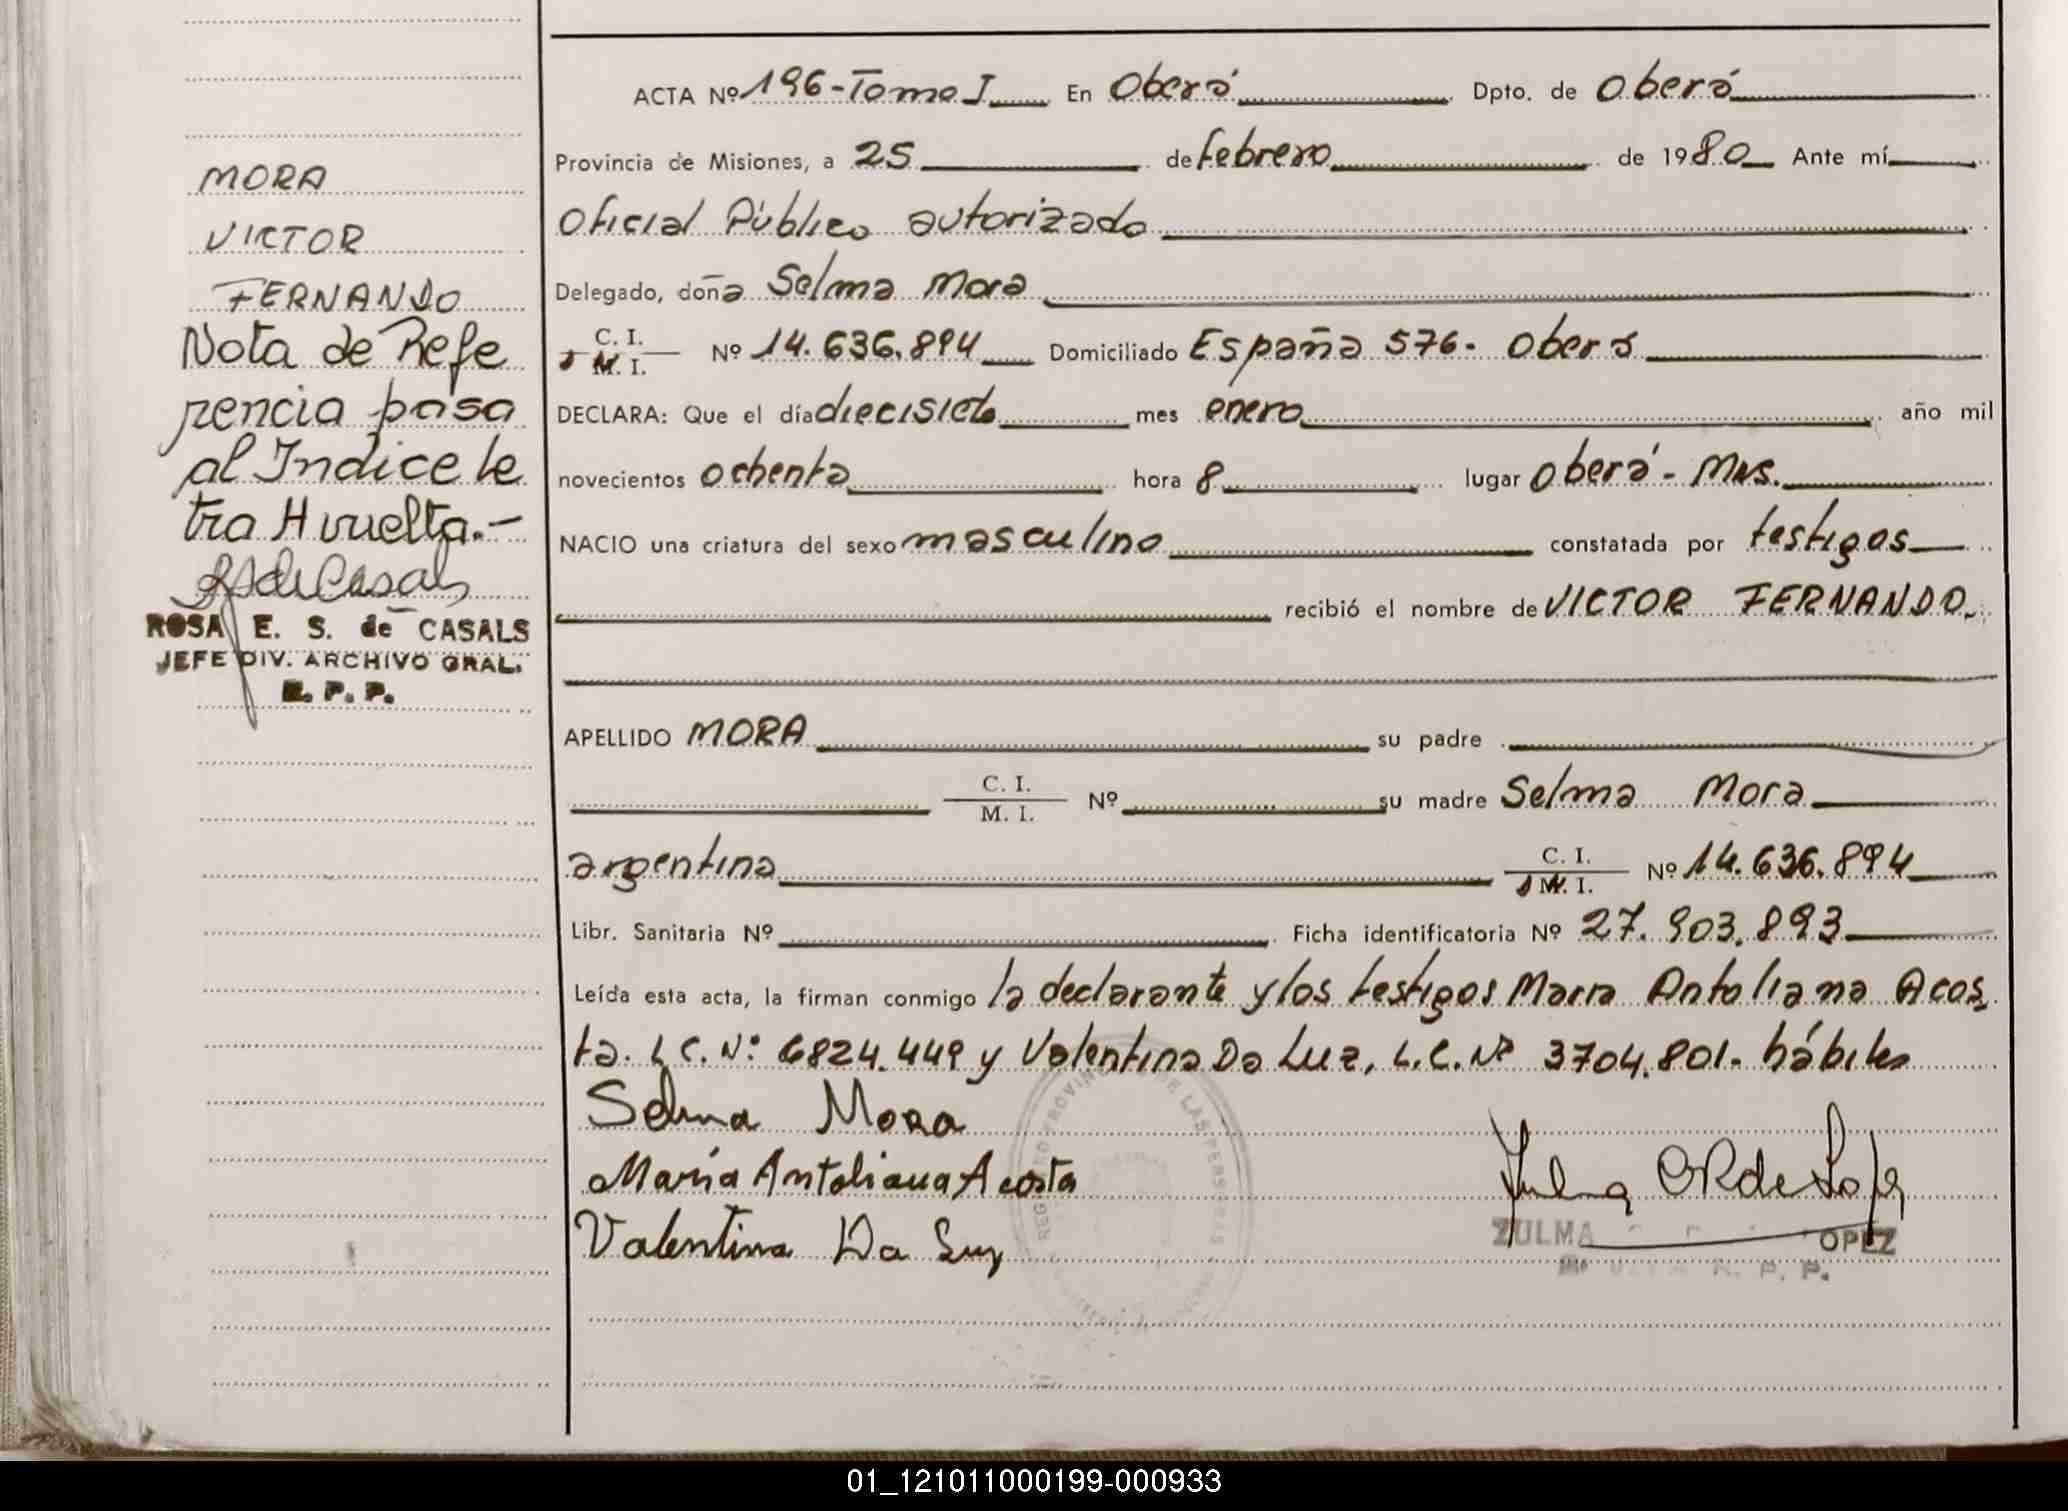 ACTA Nº 196-Tomo I En Oberá Dpto. de Oberá
Provincia de Misiones, a 25 de febrero de 1980 Ante mí
Oficial Público autorizado
Delegado, doña Selma Mora
C. I.
M. I.
Nº 14.636.894 Domiciliado España 576- Oberá
DECLARA: Que el día diecisiete mes enero año mil
novecientos ochenta hora 8 lugar Oberá - Mns.
NACIO una criatura del sexo masculino constatada por testigos
recibió el nombre de VICTOR FERNANDO.
APELLIDO MORA su padre
C. I.
M. I.
Nº su madre Selma Mora
argentina
C. I.
M. I.
Nº 14.636.894
Libr. Sanitaria Nº Ficha identificatoria Nº 27.903.893
Leída esta acta, la firman conmigo la declarante y los testigos María Antoliana Acos
ta. L.C. Nº 6824.449 y Valentina Da Luz, L.C. Nº 3704.801. hábiles
Selma Mora
María Antoliana Acosta
Valentina Da Luz
ZULMA OPEZ
R. P. P.
MORA
VICTOR
FERNANDO
Nota de Refe
rencia pasa
al Indice le
tra H vuelta.-
ROSA E. S. de CASALS
JEFE DIV. ARCHIVO GRAL.
R. P. P.
01_121011000199-000933